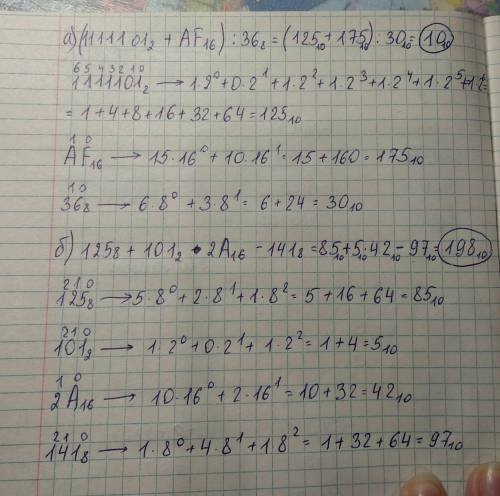 а) (1111101₂ + AF₁₆) : 36₈ = (125₁₀ + 175₁₀) : 30₁₀ = 10₁₀
6 5 4 3 2 1 0
1111101₂ → 1·2⁰ + 0·2¹ + 1·2² + 1·2³ + 1·2⁴ + 1·2⁵ + 1·2⁶ =
= 1 + 4 + 8 + 16 + 32 + 64 = 125₁₀
1 0
AF₁₆ → 15·16⁰ + 10·16¹ = 15 + 160 = 175₁₀
1 0
36₈ → 6·8⁰ + 3·8¹ = 6 + 24 = 30₁₀
б) 125₈ + 101₂ · 2A₁₆ - 141₈ = 85₁₀ + 5₁₀ · 42₁₀ - 97₁₀ = 198₁₀
2 1 0
125₈ → 5·8⁰ + 2·8¹ + 1·8² = 5 + 16 + 64 = 85₁₀
2 1 0
101₂ → 1·2⁰ + 0·2¹ + 1·2² = 1 + 4 = 5₁₀
1 0
2A₁₆ → 10·16⁰ + 2·16¹ = 10 + 32 = 42₁₀
2 1 0
141₈ → 1·8⁰ + 4·8¹ + 1·8² = 1 + 32 + 64 = 97₁₀